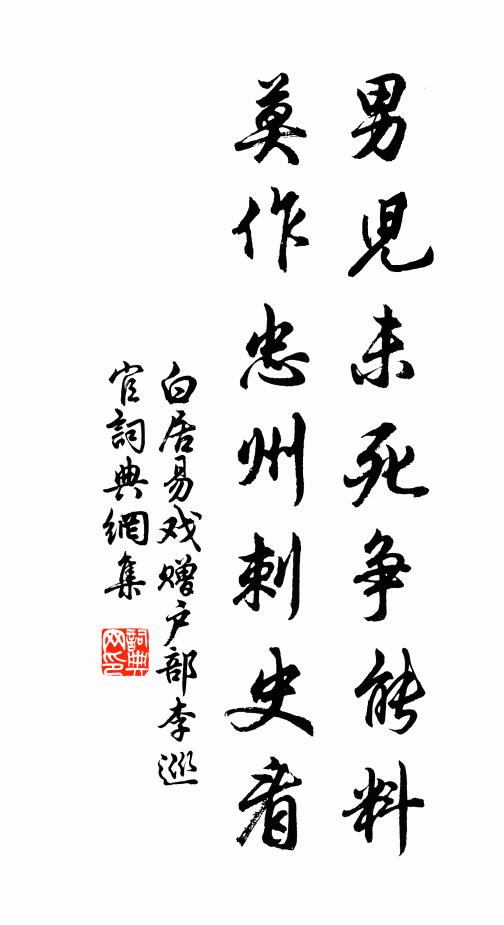 男兒未死争能料
莫作忠州刺史看
白居易戏贈户部李巡
官詞典網集
詞典
网印